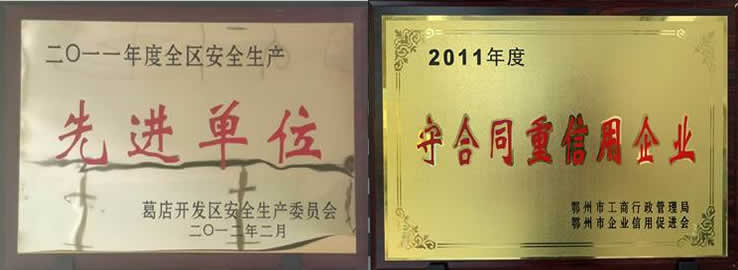 二〇一一年度全区安全生产
先进单位
葛店开发区安全生产委员会
二〇一二年二月
2011年度
守合同重信用企业
鄂州市工商行政管理局
鄂州市企业信用促进会